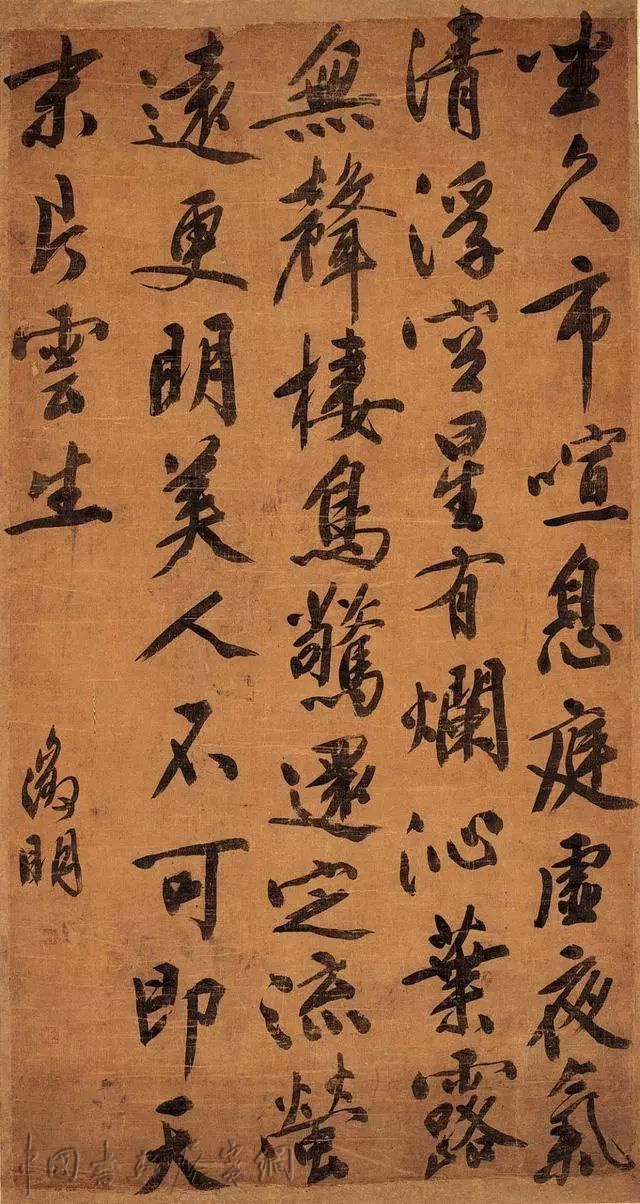 坐久市喧息庭虛夜氣
清浮空星有爛沁葉露
無聲棲鳥驚還定流螢
遠更明美人不可即天
末片雲生
徵明